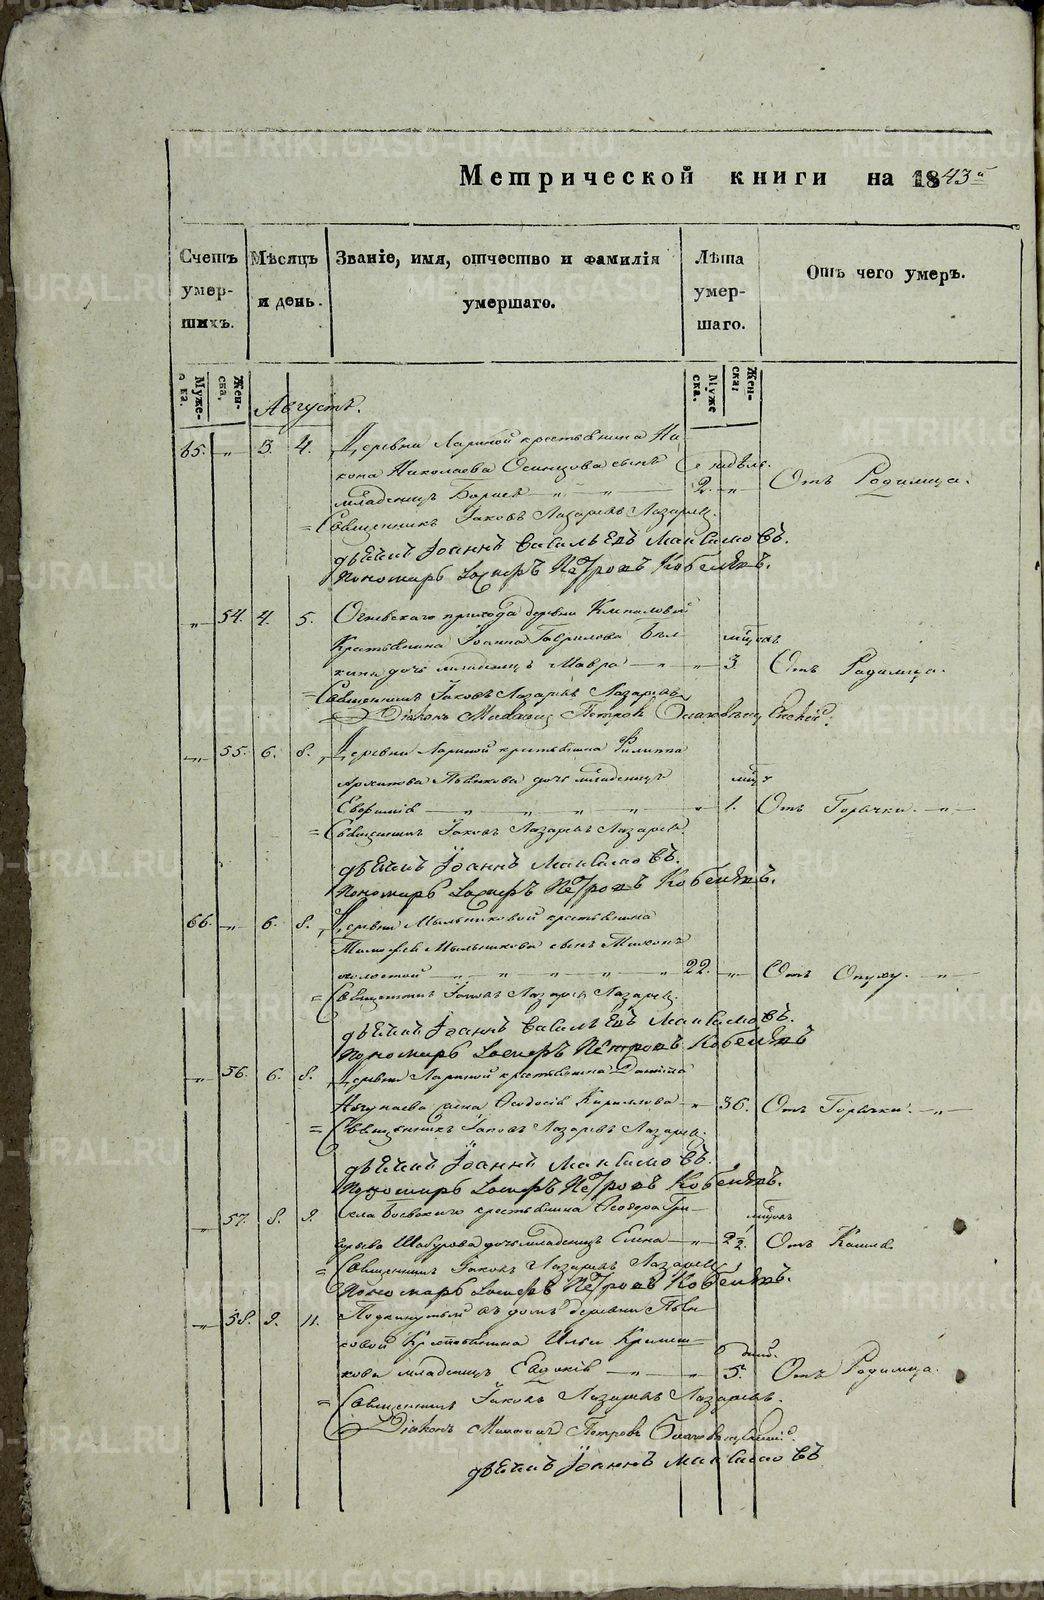 Метрической книги на 1843й
Счетъ умер-шихъ.
Мѣсяцъ и день.
Званіе, имя, отчество и фамилія умершаго.
Лѣта умер-шаго.
Отъ чего умеръ.
Муже-ска.
Жен-ска.
Муже-ска.
Жен-ска.
Августъ.
65. „ 3. 4. Деревни Лариной крестьянина Ни-
кона Николаева Осинцова сынъ недѣль.
младенецъ Борисъ — „ — „ — 2. „ Отъ Родимца.
= Священникъ Іаковъ Лазаревъ Лазаревъ.
дьячикъ Іоаннъ Васильевъ Максимовъ.
Пономарь Іосифъ Петровъ Кобелевъ.
„ 54. 4. 5. прихода деревни
Крестьянина Іоанна Гаврилова Бѣл- мѣсяцъ
кина дочь младенецъ Мавра — „ — „ 3 Отъ Родимца.
= Священникъ Іаковъ Лазаревъ Лазаревъ
Діаконъ Михаилъ Петровъ
„ 55. 6. 8. Деревни Лариной крестьянина Филиппа
Архипова Пьянкова дочь младенецъ мѣсяц
Евфимія — „ — „ — „ — „ 1. Отъ Горячки. — „ —
= Священникъ Іаковъ Лазаревъ Лазаревъ.
дьячикъ Іоаннъ Максимовъ.
Пономарь Іосифъ Петровъ Кобелевъ.
66. „ 6. 8. Деревни Мыльниковой крестьянина
Тимофея Мыльникова сынъ
холостой — „ — „ — „ — „ 22. „ Отъ Опуху. — „ —
= Священникъ Іаковъ Лазаревъ Лазаревъ.
дьячикъ Іоаннъ Васильевъ Максимовъ.
Пономарь Іосифъ Петровъ Кобелевъ
„ 56. 6. 8. Деревни Лариной крестьянина Даніила
жена Ѳеодосія Кириллова — „ 36. Отъ Горячки. — „ —
= Священникъ Іаковъ Лазаревъ Лазаревъ.
дьячикъ Іоаннъ Максимовъ.
Пономарь Іосифъ Петровъ Кобелевъ.
„ 57. 8. 9. Села Боевскаго крестьянина Ѳеодора Гри- мѣсяцъ
горьева Шабурова дочь младенецъ Елена — „ 2 1/2. Отъ Кашля.
= Священникъ Іаковъ Лазаревъ Лазаревъ
Пономарь Іосифъ Петровъ Кобелевъ.
„ 58. 9. 11. Подкинутый въ домъ деревни Пьян-
ковой Крестьянина Ильи дней.
кова младенецъ Евдокія — „ — „ 5. Отъ Родимца.
= Священникъ Іаковъ Лазаревъ Лазаревъ.
Діаконъ Михаилъ Петровъ
дьячикъ Іоаннъ Максимовъ
METRIKI.GASO-URAL.RU